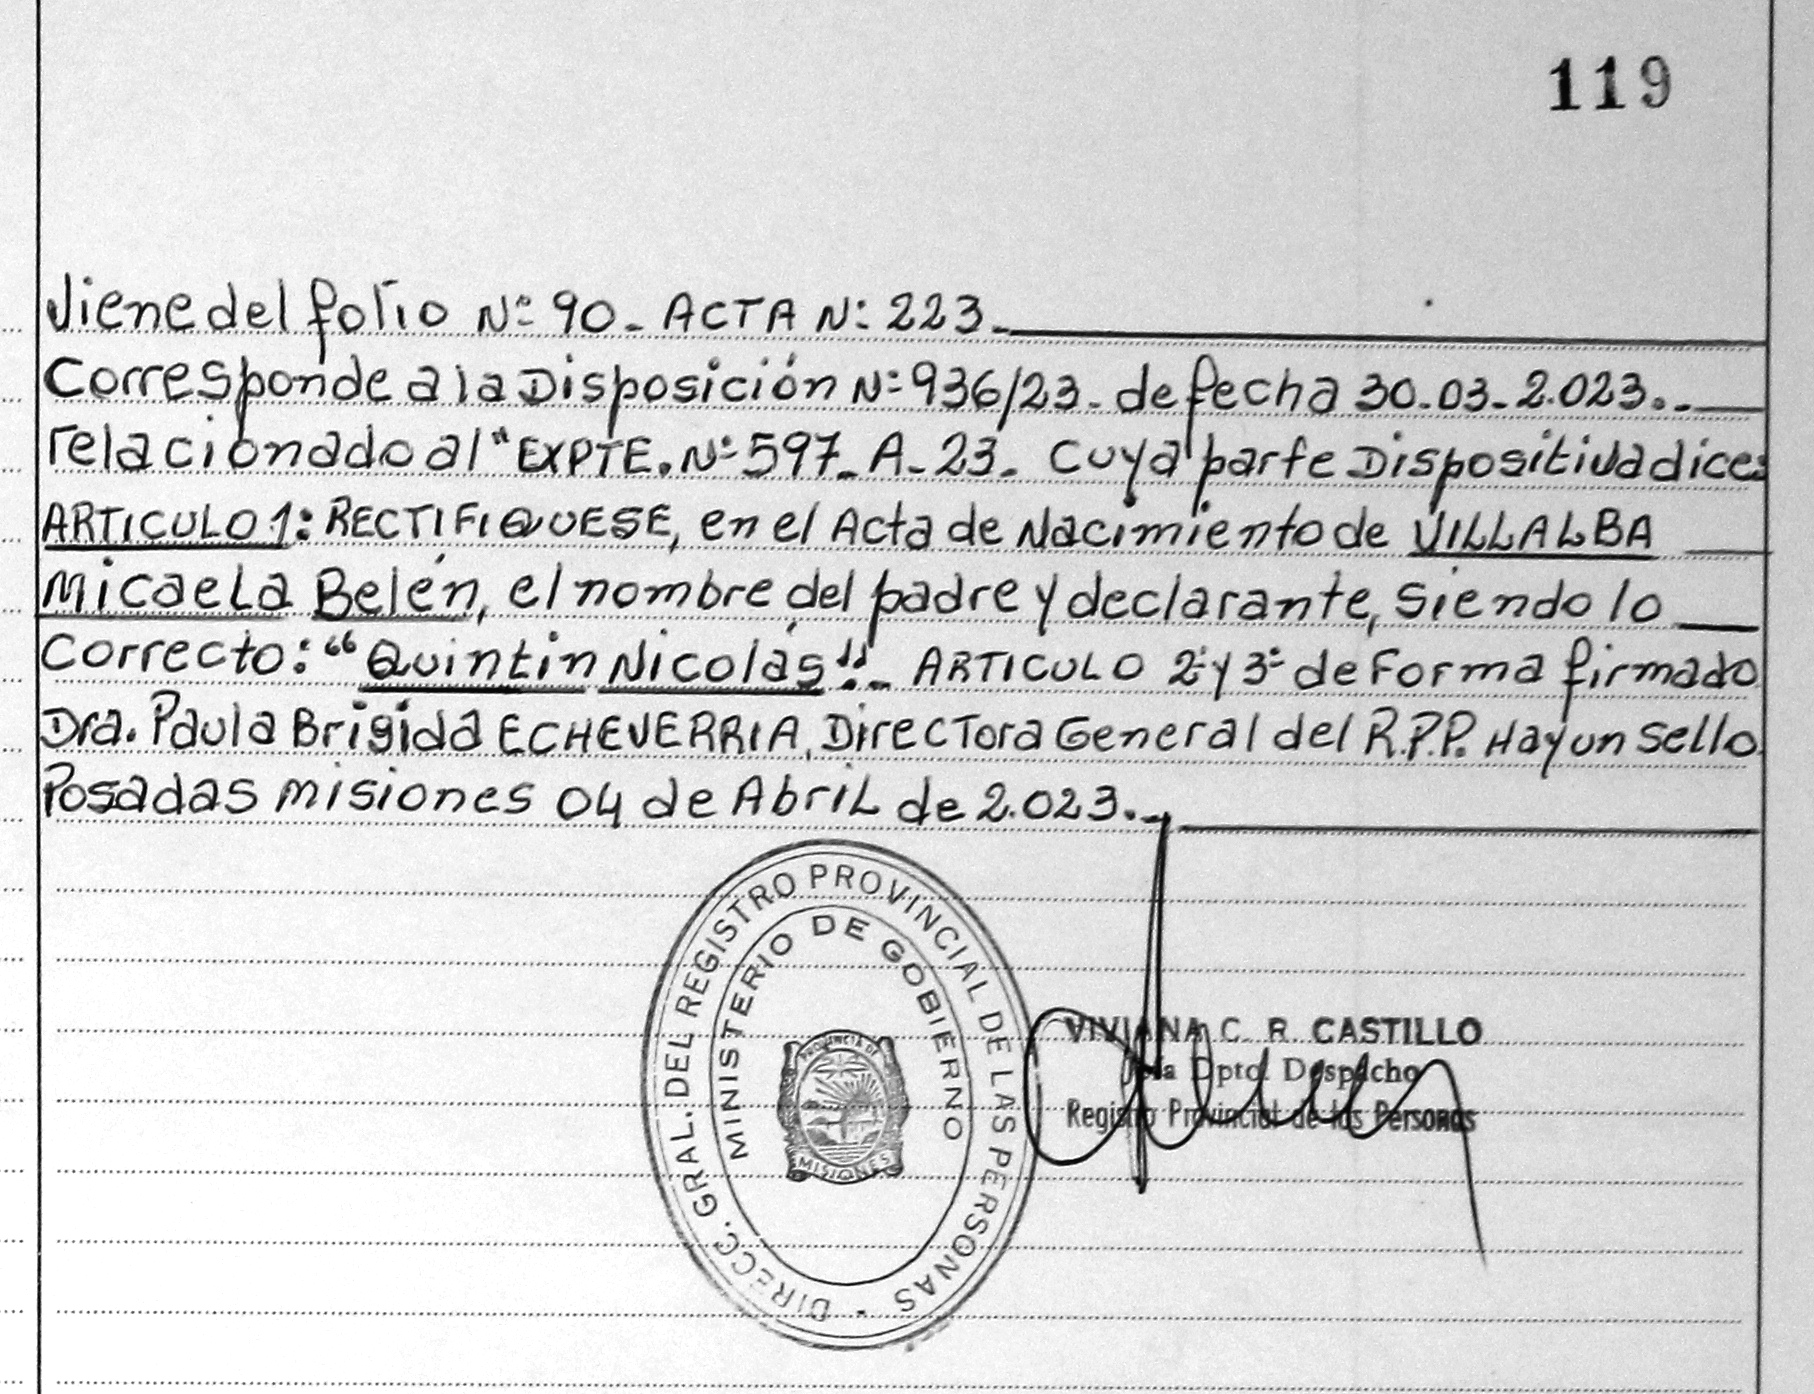 119
Viene del folio Nº 90_ ACTA Nº: 223._
Corresponde a la Disposición Nº 936/23_ de fecha 30_03_2.023._
relacionado al "EXPTE. Nº 597_A_23_ Cuya parte Dispositiva dice:
ARTICULO 1: RECTIFIQUESE, en el Acta de Nacimiento de VILLALBA
Micaela Belén, el nombre del padre y declarante, siendo lo
Correcto: "Quintin Nicolás"._ ARTICULO 2º y 3º de Forma firmado
Dra. Paula Brigida ECHEVERRIA, Directora General del R.P.P. Hay un sello
Posadas misiones 04 de Abril de 2.023._
DIRECC. GRAL. DEL REGISTRO PROVINCIAL DE LAS PERSONAS
MINISTERIO DE GOBIERNO
PROVINCIA DE
MISIONES
VIVIANA C. R. CASTILLO
Jefa Dpto. Despacho
Registro Provincial de las Personas